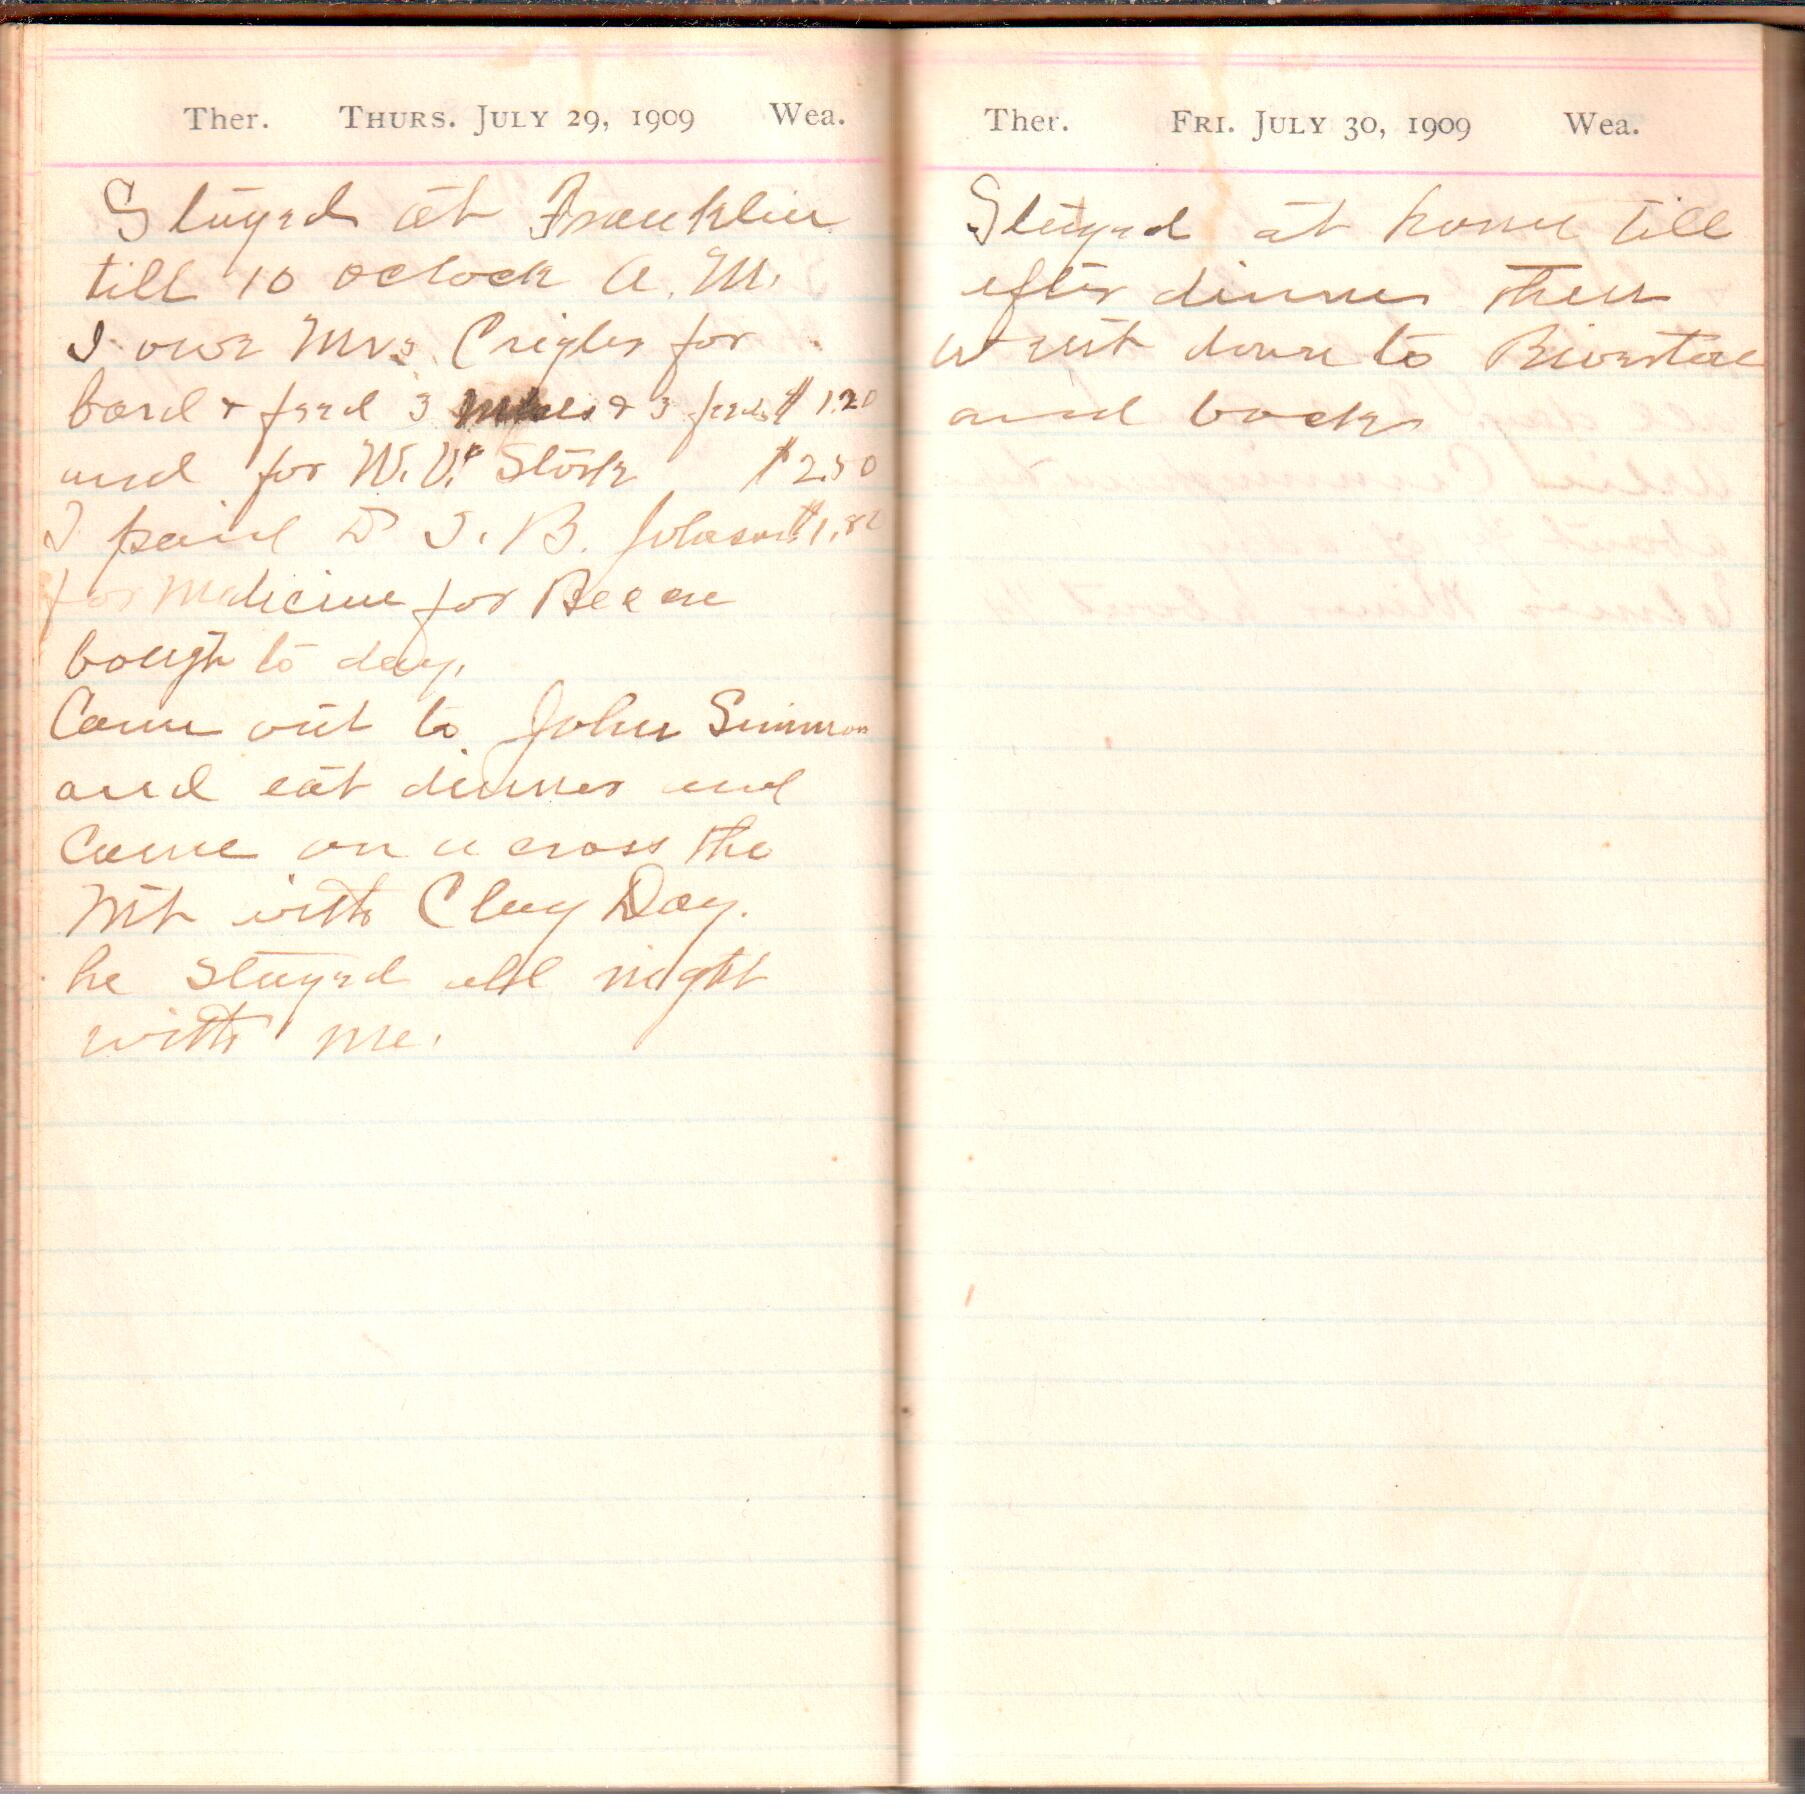 Ther. THURS. JULY 29, 1909 Wea.
Stayed at Franklin
till 10 oclock A. M.
I owe Mrs. Crigler for
bord & feed 3 & 3 feeds $1.20
and for W. V. Stork $2.50
I paid D J. B. Johnson $1.80
for Medicine for Beeen
bough to day.
Came out to John Simmon
and eat dinner and
came on a cross the
Mt with Clay Day.
he stayed all night
with me.
Ther. FRI. JULY 30, 1909 Wea.
Stayed at home till
after dinner then
went down to
and back